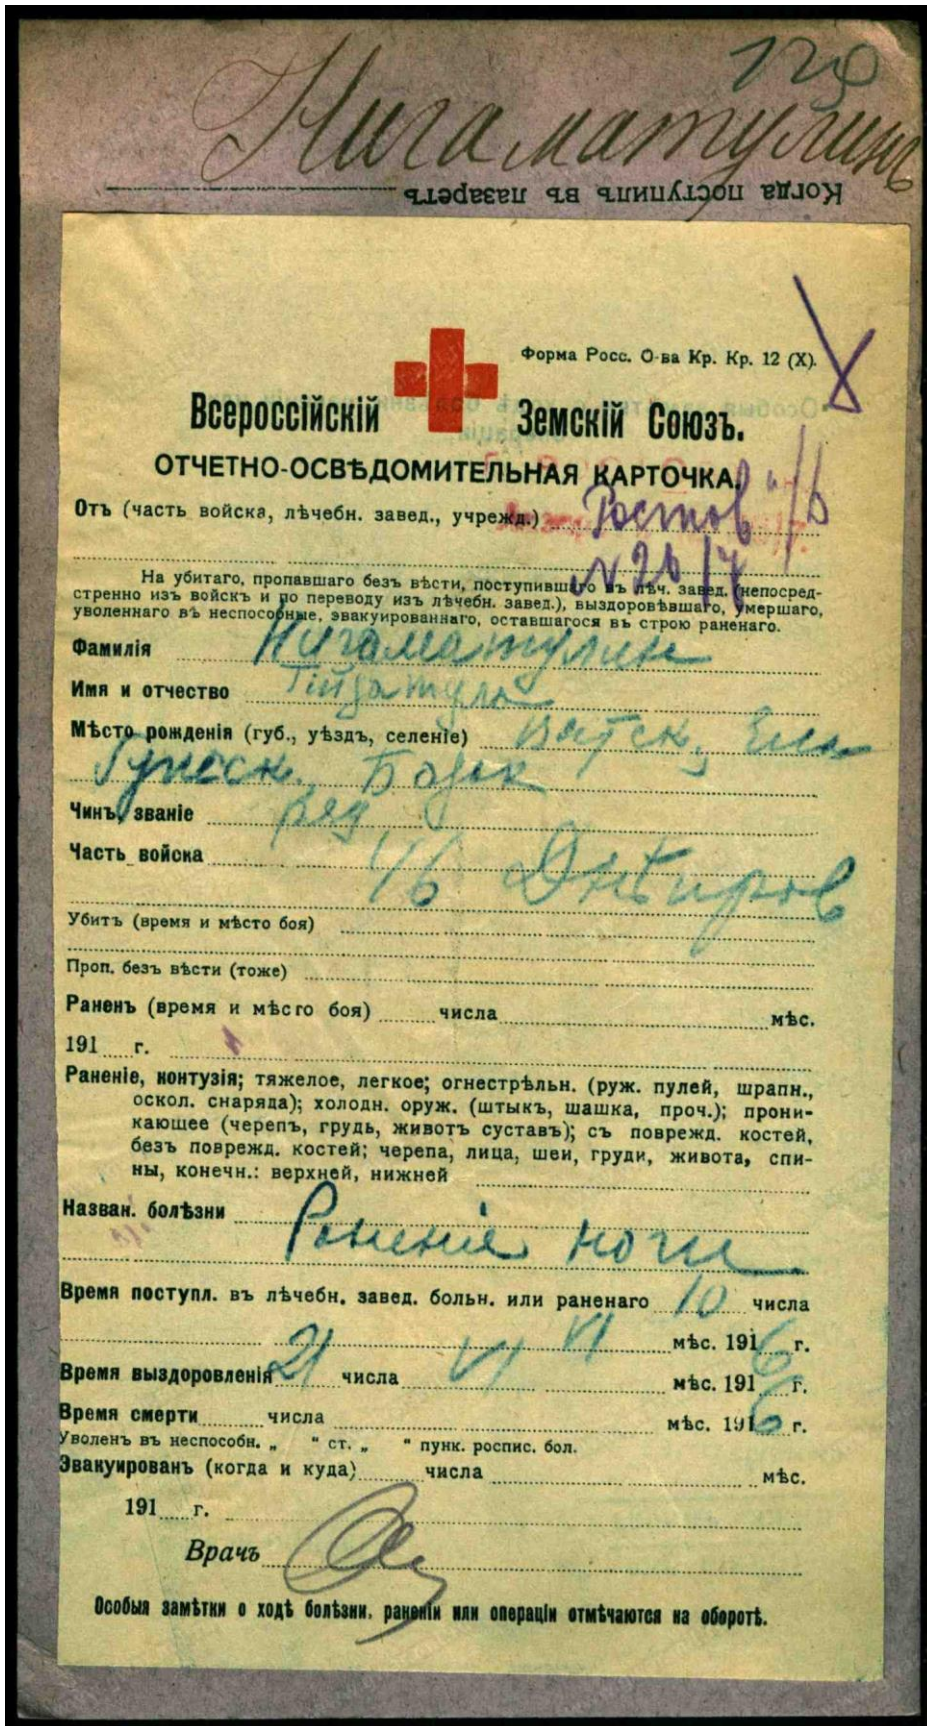 129
Нигаматулинъ
Когда поступилъ въ лазаретъ
Форма Росс. О-ва Кр. Кр. 12 (X).
Всероссійскій Земскій Союзъ.
ОТЧЕТНО-ОСВѢДОМИТЕЛЬНАЯ КАРТОЧКА.
Отъ (часть войска, лѣчебн. завед., учрежд.) Ростов н/Д
N 20/7
На убитаго, пропавшаго безъ вѣсти, поступившаго въ лѣч. завед. (непосред-
ственно изъ войскъ и по переводу изъ лѣчебн. завед.), выздоровѣвшаго, умершаго,
уволеннаго въ неспособные, эвакуированнаго, оставшагося въ строю раненаго.
Фамилія Нигаматулин
Имя и отчество
Мѣсто рожденія (губ., уѣздъ, селеніе) Вятск. Ела
бужск.
Чинъ, званіе ряд.
Часть войска 46 Днѣпров
Убитъ (время и мѣсто боя)
Проп. безъ вѣсти (тоже)
Раненъ (время и мѣсто боя) числа мѣс.
191 г.
Раненіе, контузія; тяжелое, легкое; огнестрѣльн. (руж. пулей, шрапн.,
оскол. снаряда); холодн. оруж. (штыкъ, шашка, проч.); прони-
кающее (черепъ, грудь, животъ суставъ); съ поврежд. костей,
безъ поврежд. костей; черепа, лица, шеи, груди, живота, спи-
ны, конечн.: верхней, нижней
Назван. болѣзни Раненіе ноги
Время поступл. въ лѣчебн. завед. больн. или раненаго 10 числа
VI мѣс. 1916 г.
Время выздоровленія 21 числа VI мѣс. 1916 г.
Время смерти числа мѣс. 1916 г.
Уволенъ въ неспособн. „ " ст. „ " пунк. роспис. бол.
Эвакуированъ (когда и куда) числа мѣс.
191 г.
Врачъ
Особыя замѣтки о ходѣ болѣзни, раненіи или операціи отмѣчаются на оборотѣ.